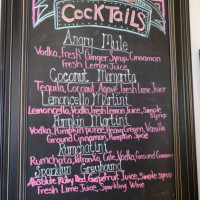 COCKTAILS
Angry Mule
Vodka, Fresh Ginger Syrup, Cinnamon
Fresh Lemon Juice
Coconut Margarita
Tequila, Coconut, Agave, Fresh Lime Juice
Lemoncello Martini
Lemoncello, Vodka, Fresh Lemon Juice, Simple
Syrup
Pumpkin Martini
Vodka, Pumpkin Puree, Heavy Cream, Vanilla
Ground Cinnamon, Pumpkin Spice
Rumchatini
Rumchata, Vodka, Ground Cinnamon
Sparkling Greyhound
Absolute Ruby Red, Grapefruit Juice, Simple
Fresh Lime Juice, Sparkling Wine